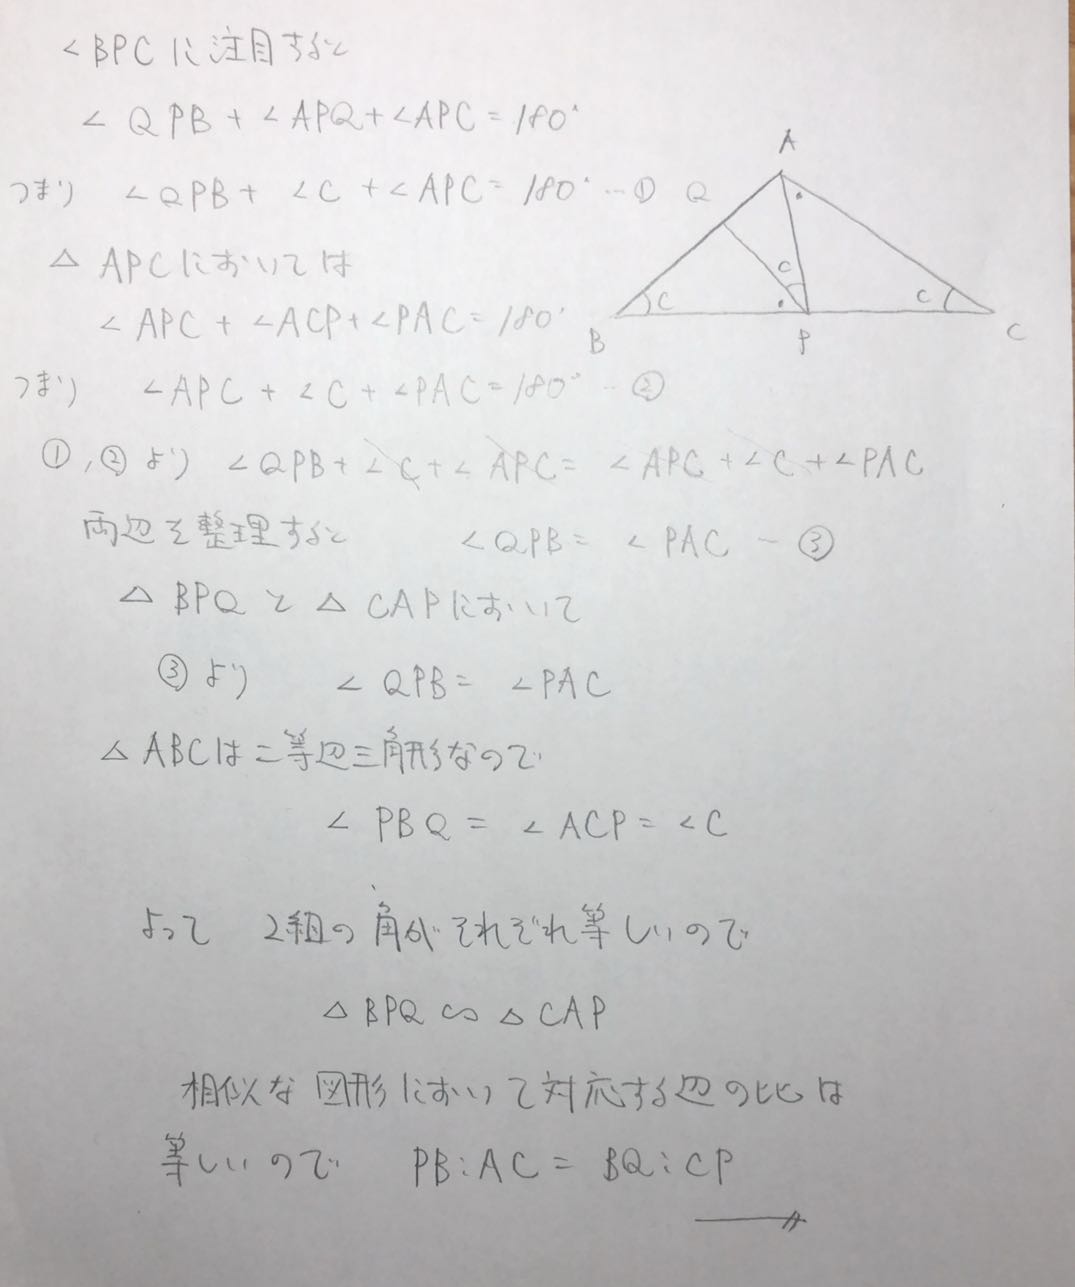 ∠BPCに注目すると
∠QPB + ∠APQ + ∠APC = 180°
つまり ∠QPB + ∠C + ∠APC = 180° … ①
△APCにおいては
∠APC + ∠ACP + ∠PAC = 180°
つまり ∠APC + ∠C + ∠PAC = 180° … ②
①,②より ∠QPB + ∠C + ∠APC = ∠APC + ∠C + ∠PAC
両辺を整理すると ∠QPB = ∠PAC … ③
△BPQと△CAPにおいて
③より ∠QPB = ∠PAC
△ABCは二等辺三角形なので
∠PBQ = ∠ACP = ∠C
よって 2組の角がそれぞれ等しいので
△BPQ ∽ △CAP
相似な図形において対応する辺の比は
等しいので PB:AC = BQ:CP
A
Q
C
C
C
B
P
C